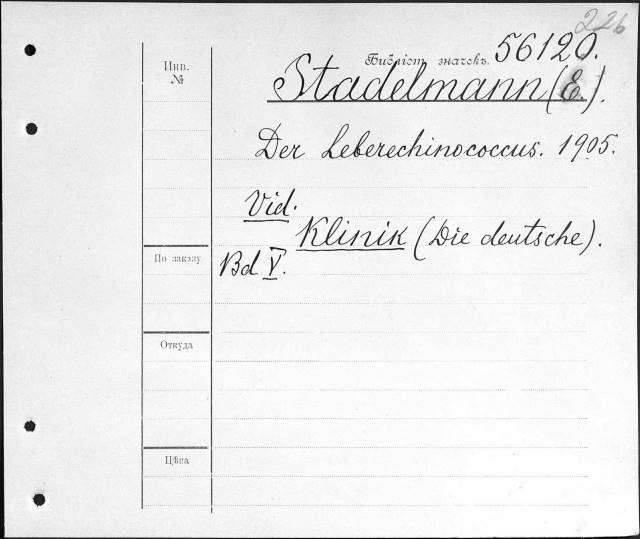 226
Библіот. значекъ. 56120.
Инв.
№
Stadelmann (E.).
Der Leberechinococcus. 1905.
Vid.
Klinik (Die deutsche).
По заказу
Bd V.
Откуда
Цѣна